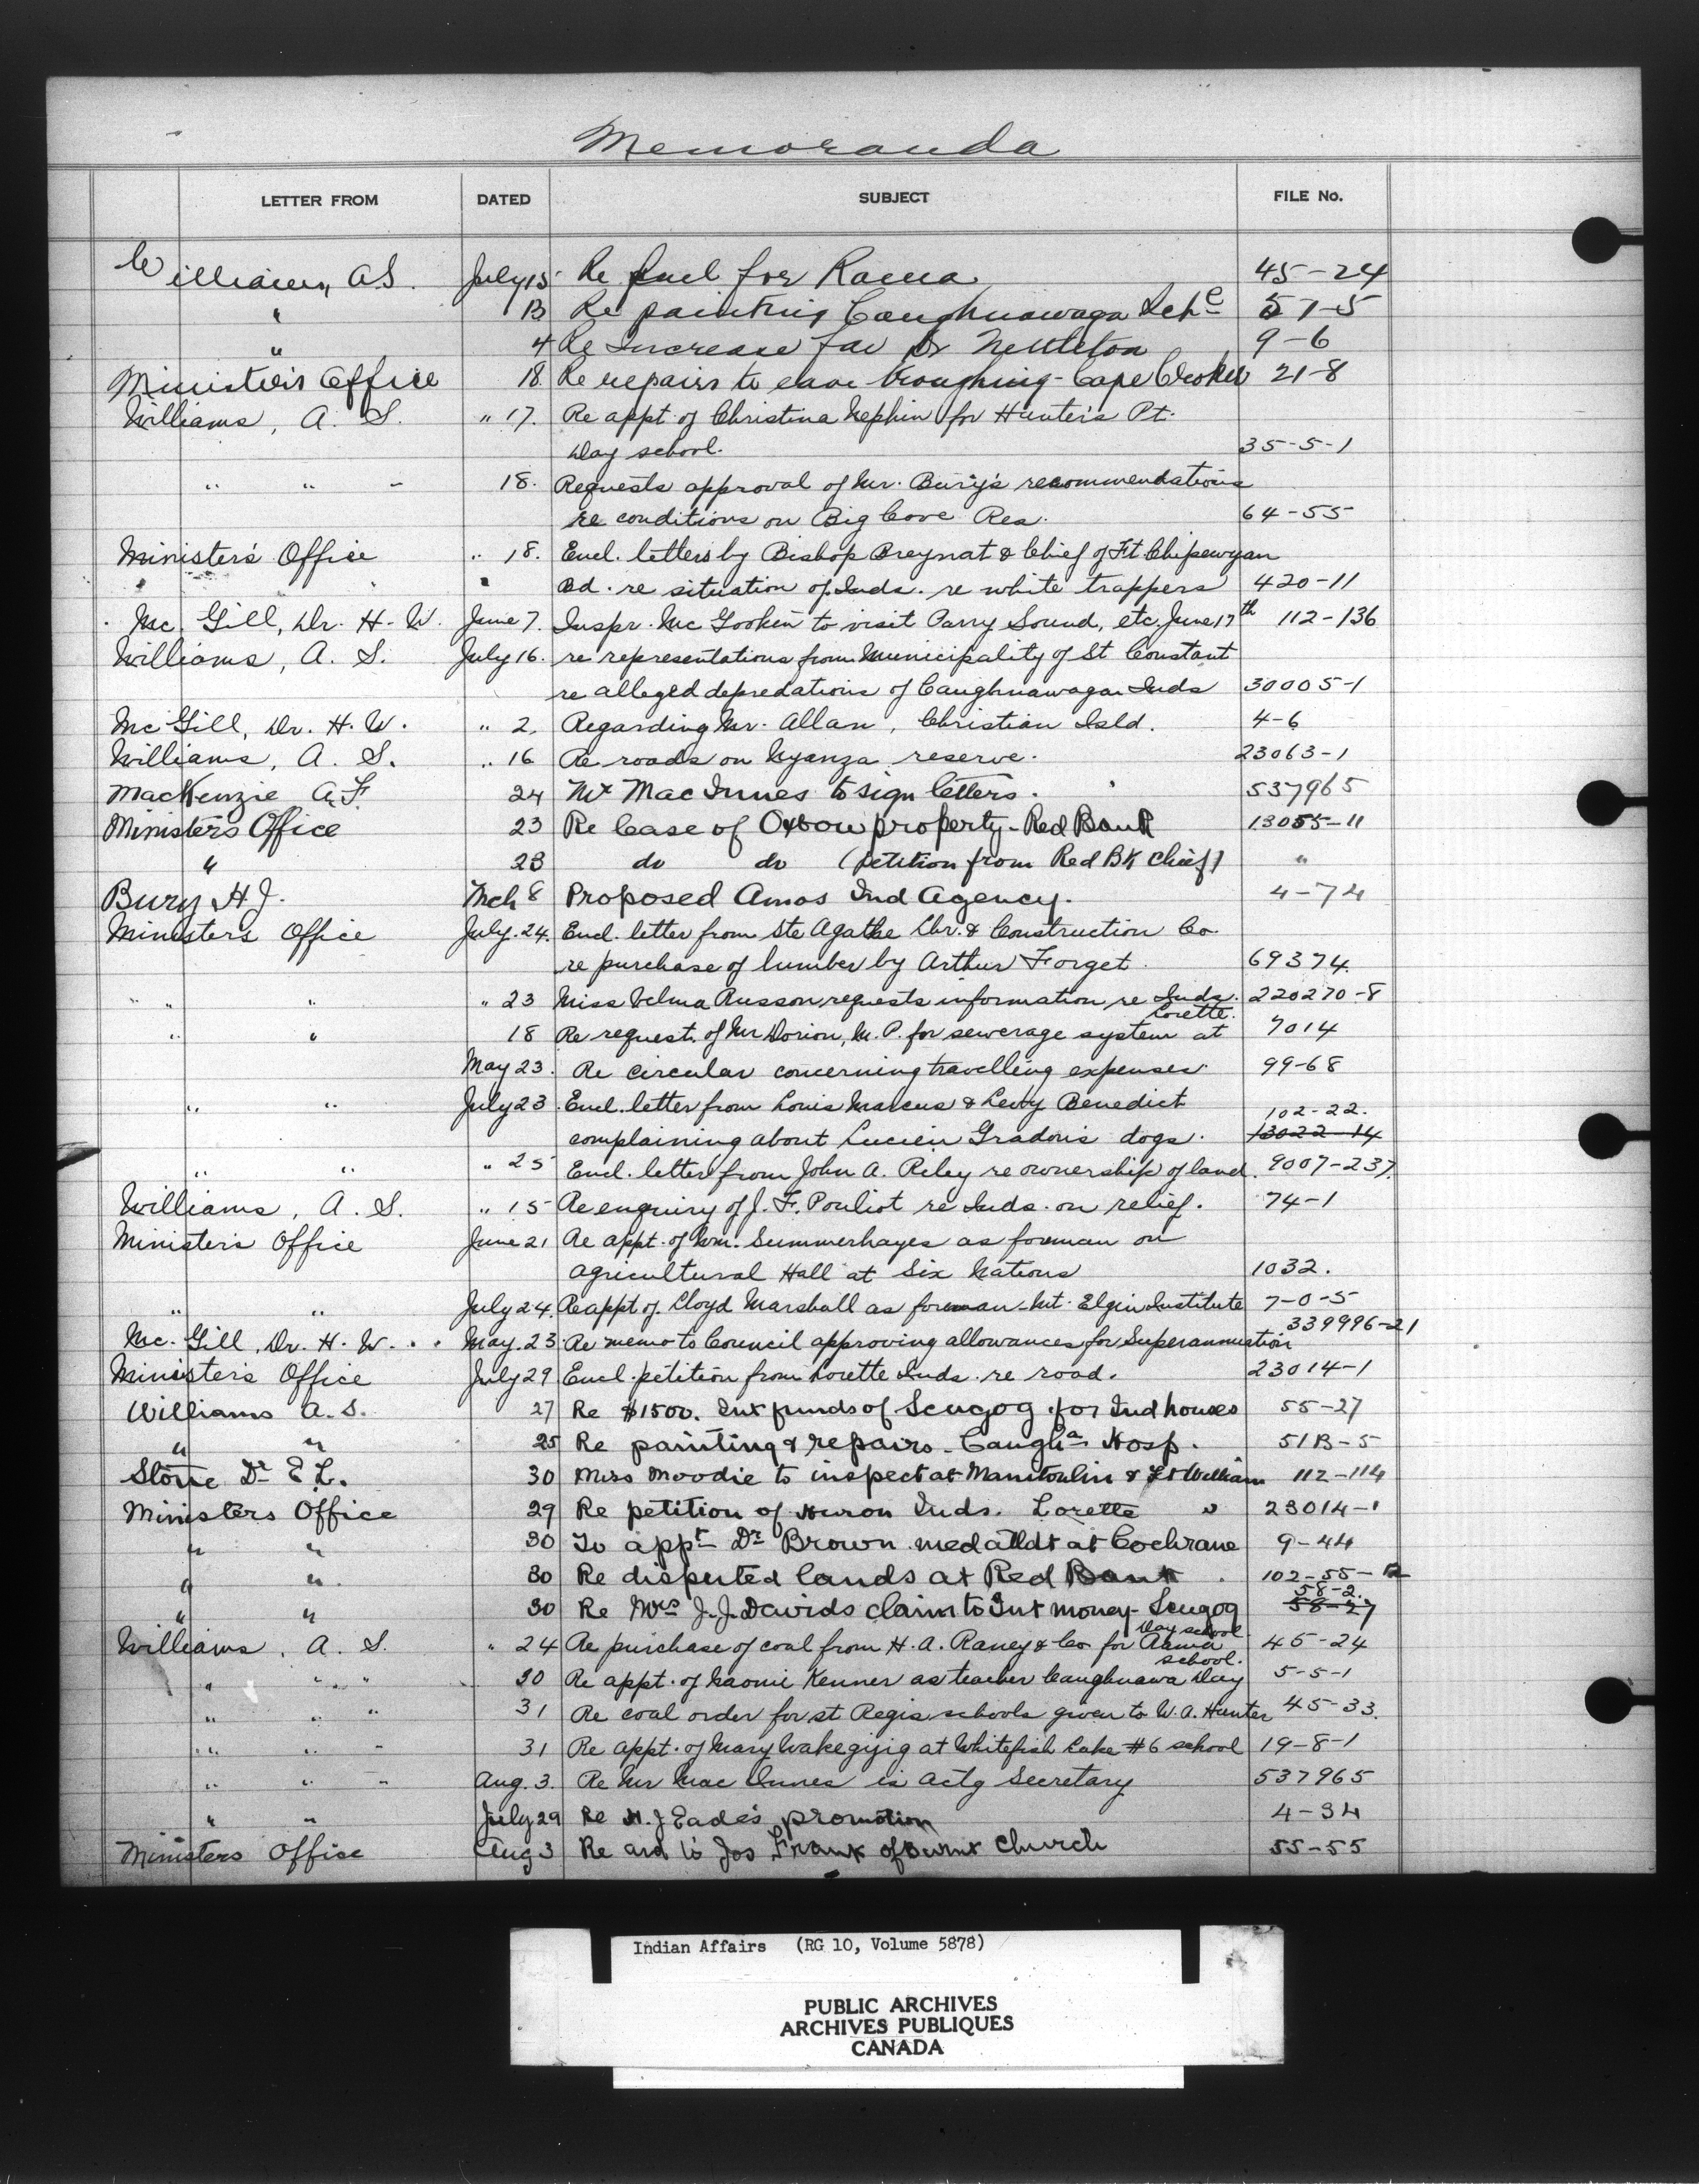 Memoranda
LETTER FROM DATED SUBJECT FILE No.
Williams, A.S. July 15 Re fuel for Rama 45-24
" 13 Re painting Caughnawaga Schl 57-5
" 4 Re Increase for Dr Nettleton 9-6
Minister's Office 18 Re repairs to eave troughing - Cape Croker 21-8
Williams, A. S. " 17. Re appt. of Christina Nephin for Hunter's Pt.
Day school. 35-5-1
" " " 18. Requests approval of Mr. Bury's recommendations
re conditions on Big Cove Res. 64-55
Minister's Office " 18. Encl. letters by Bishop Breynat & Chief of Ft Chipewyan
Bd. re situation of Inds. re white trappers 420-11
Mc Gill, Dr. H. W. June 7. Inspr. Mc Gookin to visit Parry Sound, etc. June 17th 112-136
Williams, A. S. July 16. re representations from Municipality of St Constant
re alleged depredations of Caughnawagan Inds 30005-1
Mc Gill, Dr. H. W. " 2. Regarding Mr. Allan, Christian Isld. 4-6
Williams, A. S. " 16 Re roads on Nyanza reserve. 23063-1
MacKenzie A.F. 24 Mr MacInnes to sign letters. 537965
Ministers Office 23 Re lease of Oxbow property - Red Bank 13055-11
" 23 do do (petition from Red Bk Chief) "
Bury H.J. Mch 8 Proposed Amos Ind Agency. 4-74
Minister's Office July. 24. Encl. letter from Ste Agathe Lbr. & Construction Co.
re purchase of lumber by Arthur Forget. 69374
" " " " 23 Miss Velma Russon requests information re Inds. 220270-8
" " 18 Re request of Mr Dorion, M. P. for sewerage system at Lorette. 7014
May 23. Re circular concerning travelling expenses. 99-68
" " July 23. Encl. letter from Louis Marcus & Levy Benedict
complaining about Lucien Gradon's dogs. 102-22. 13022-14
" " " 25 Encl. letter from John A. Riley re ownership of land. 9007-237.
Williams, A. S. " 15 Re enquiry of J. F. Pouliot re Inds. on relief. 74-1
Minister's Office June 21 Re appt. of Wm. Summerhayes as foreman on
Agricultural Hall at Six Nations 1032.
" " July 24. Re appt. of Lloyd Marshall as foreman - Mt. Elgin Institute 7-0-5
Mc. Gill, Dr. H. W. May. 23. Re memo to Council approving allowances for Superannuation 339996-21
Minister's Office July 29 Encl. petition from Lorette Inds. re road. 23014-1
Williams A.S. 27 Re $1500. Int funds of Scugog for Ind houses 55-27
" " 25 Re painting & repairs - Caugha Hosp. 51B-5
Stone Dr E L. 30 Miss Moodie to inspect at Manitoulin & Ft William 112-114
Ministers Office 29 Re petition of Huron Inds. Lorette 23014-1
" " 30 To appt Dr Brown med attdt at Cochrane 9-44
" " 30 Re disputed lands at Red Bank. 102-55-
" " 30 Re Mrs J.J. Davids claim to Int money - Scugog 58-2. 58-27
Williams, A. S. " 24 Re purchase of coal from H. A. Raney & Co for Rama Day school 45-24
" " " 30 Re appt. of Naomi Kenner as teacher Caughnawa Day school. 5-5-1
" " " 31 Re coal order for St Regis schools given to W. A. Hunter 45-33.
" " " 31 Re appt. of Mary Wakegijig at Whitefish Lake #6 school 19-8-1
" " " Aug. 3. Re Mr MacInnes is Actg Secretary 537965
" " July 29 Re H.J Eade's promotion 4-34
Ministers Office Aug 3 Re aid to Jos Frank of Burnt Church 55-55
Indian Affairs (RG 10, Volume 5878)
PUBLIC ARCHIVES
ARCHIVES PUBLIQUES
CANADA